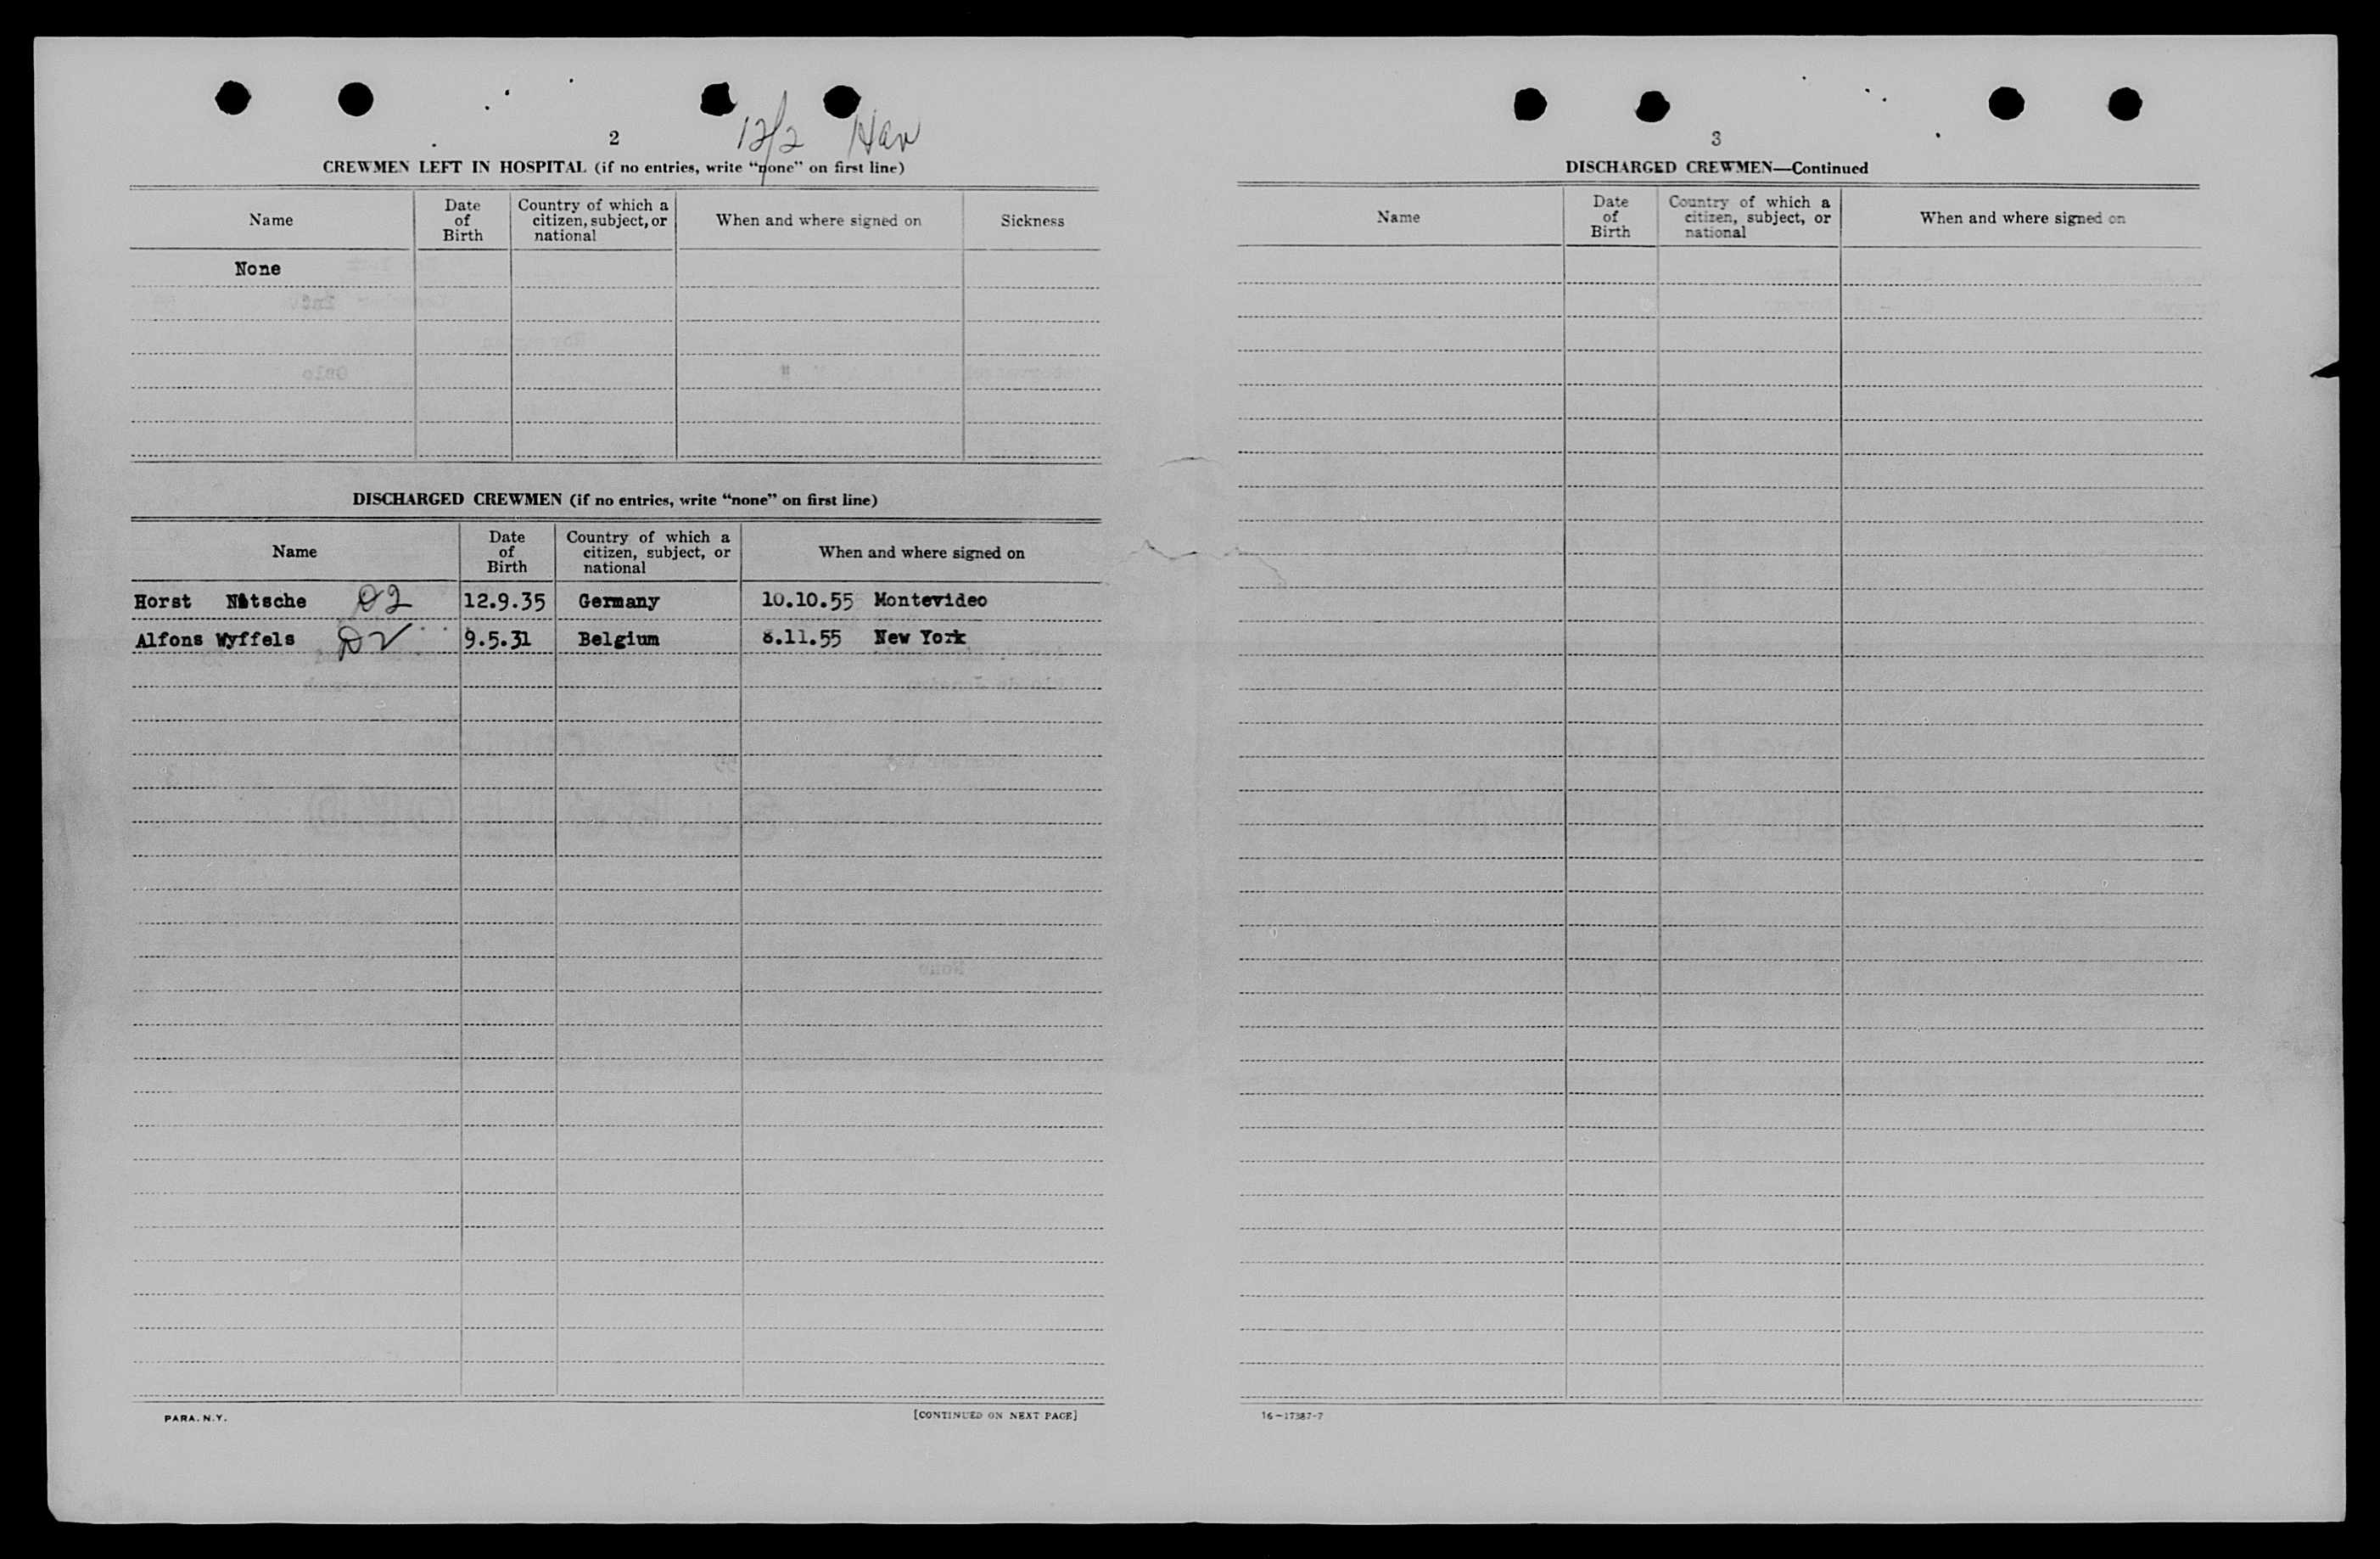 2
12/2 Hav
CREWMEN LEFT IN HOSPITAL (if no entries, write “none” on first line)
Name
Date of Birth
Country of which a citizen, subject, or national
When and where signed on
Sickness
None
DISCHARGED CREWMEN (if no entries, write “none” on first line)
Name
Date of Birth
Country of which a citizen, subject, or national
When and where signed on
Horst Nitsche D2 12.9.35 Germany 10.10.55 Montevideo
Alfons Wyffels D2 9.5.31 Belgium 8.11.55 New York
PARA. N.Y.
[CONTINUED ON NEXT PAGE]
3
DISCHARGED CREWMEN—Continued
Name
Date of Birth
Country of which a citizen, subject, or national
When and where signed on
16—17387-7